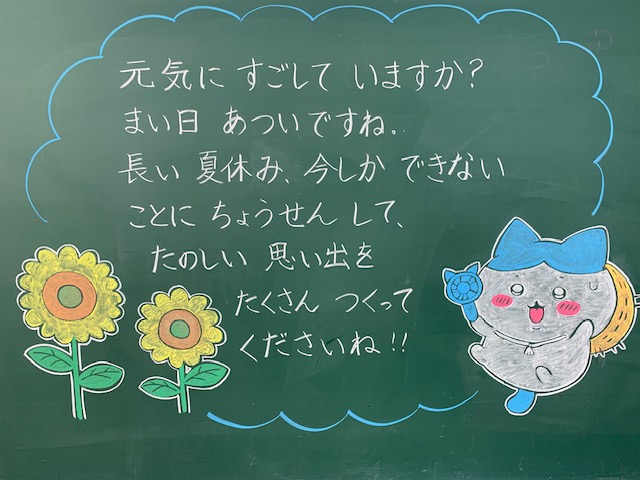 元気に すごして いますか？
まい日 あついですね。
長い 夏休み、今しか できない
ことに ちょうせん して、
たのしい 思い出を
たくさん つくって
くださいね！！